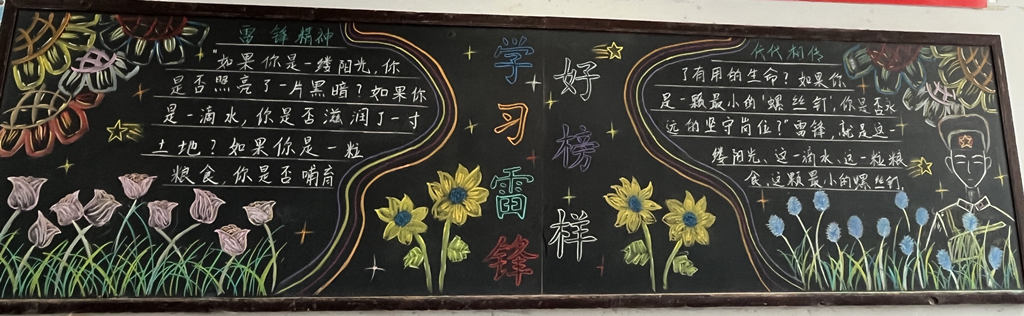 雷锋精神
"如果你是一缕阳光,你
是否照亮了一片黑暗?如果你
是一滴水,你是否滋润了一寸
土地?如果你是一粒
粮食,你是否哺育
学习雷锋
好榜样
代代相传
了有用的生命?如果你
是一颗最小的"螺丝钉",你是否永
远的坚守岗位?"雷锋,就是这一
缕阳光、这一滴水、这一粒粮
食、这颗最小的螺丝钉.